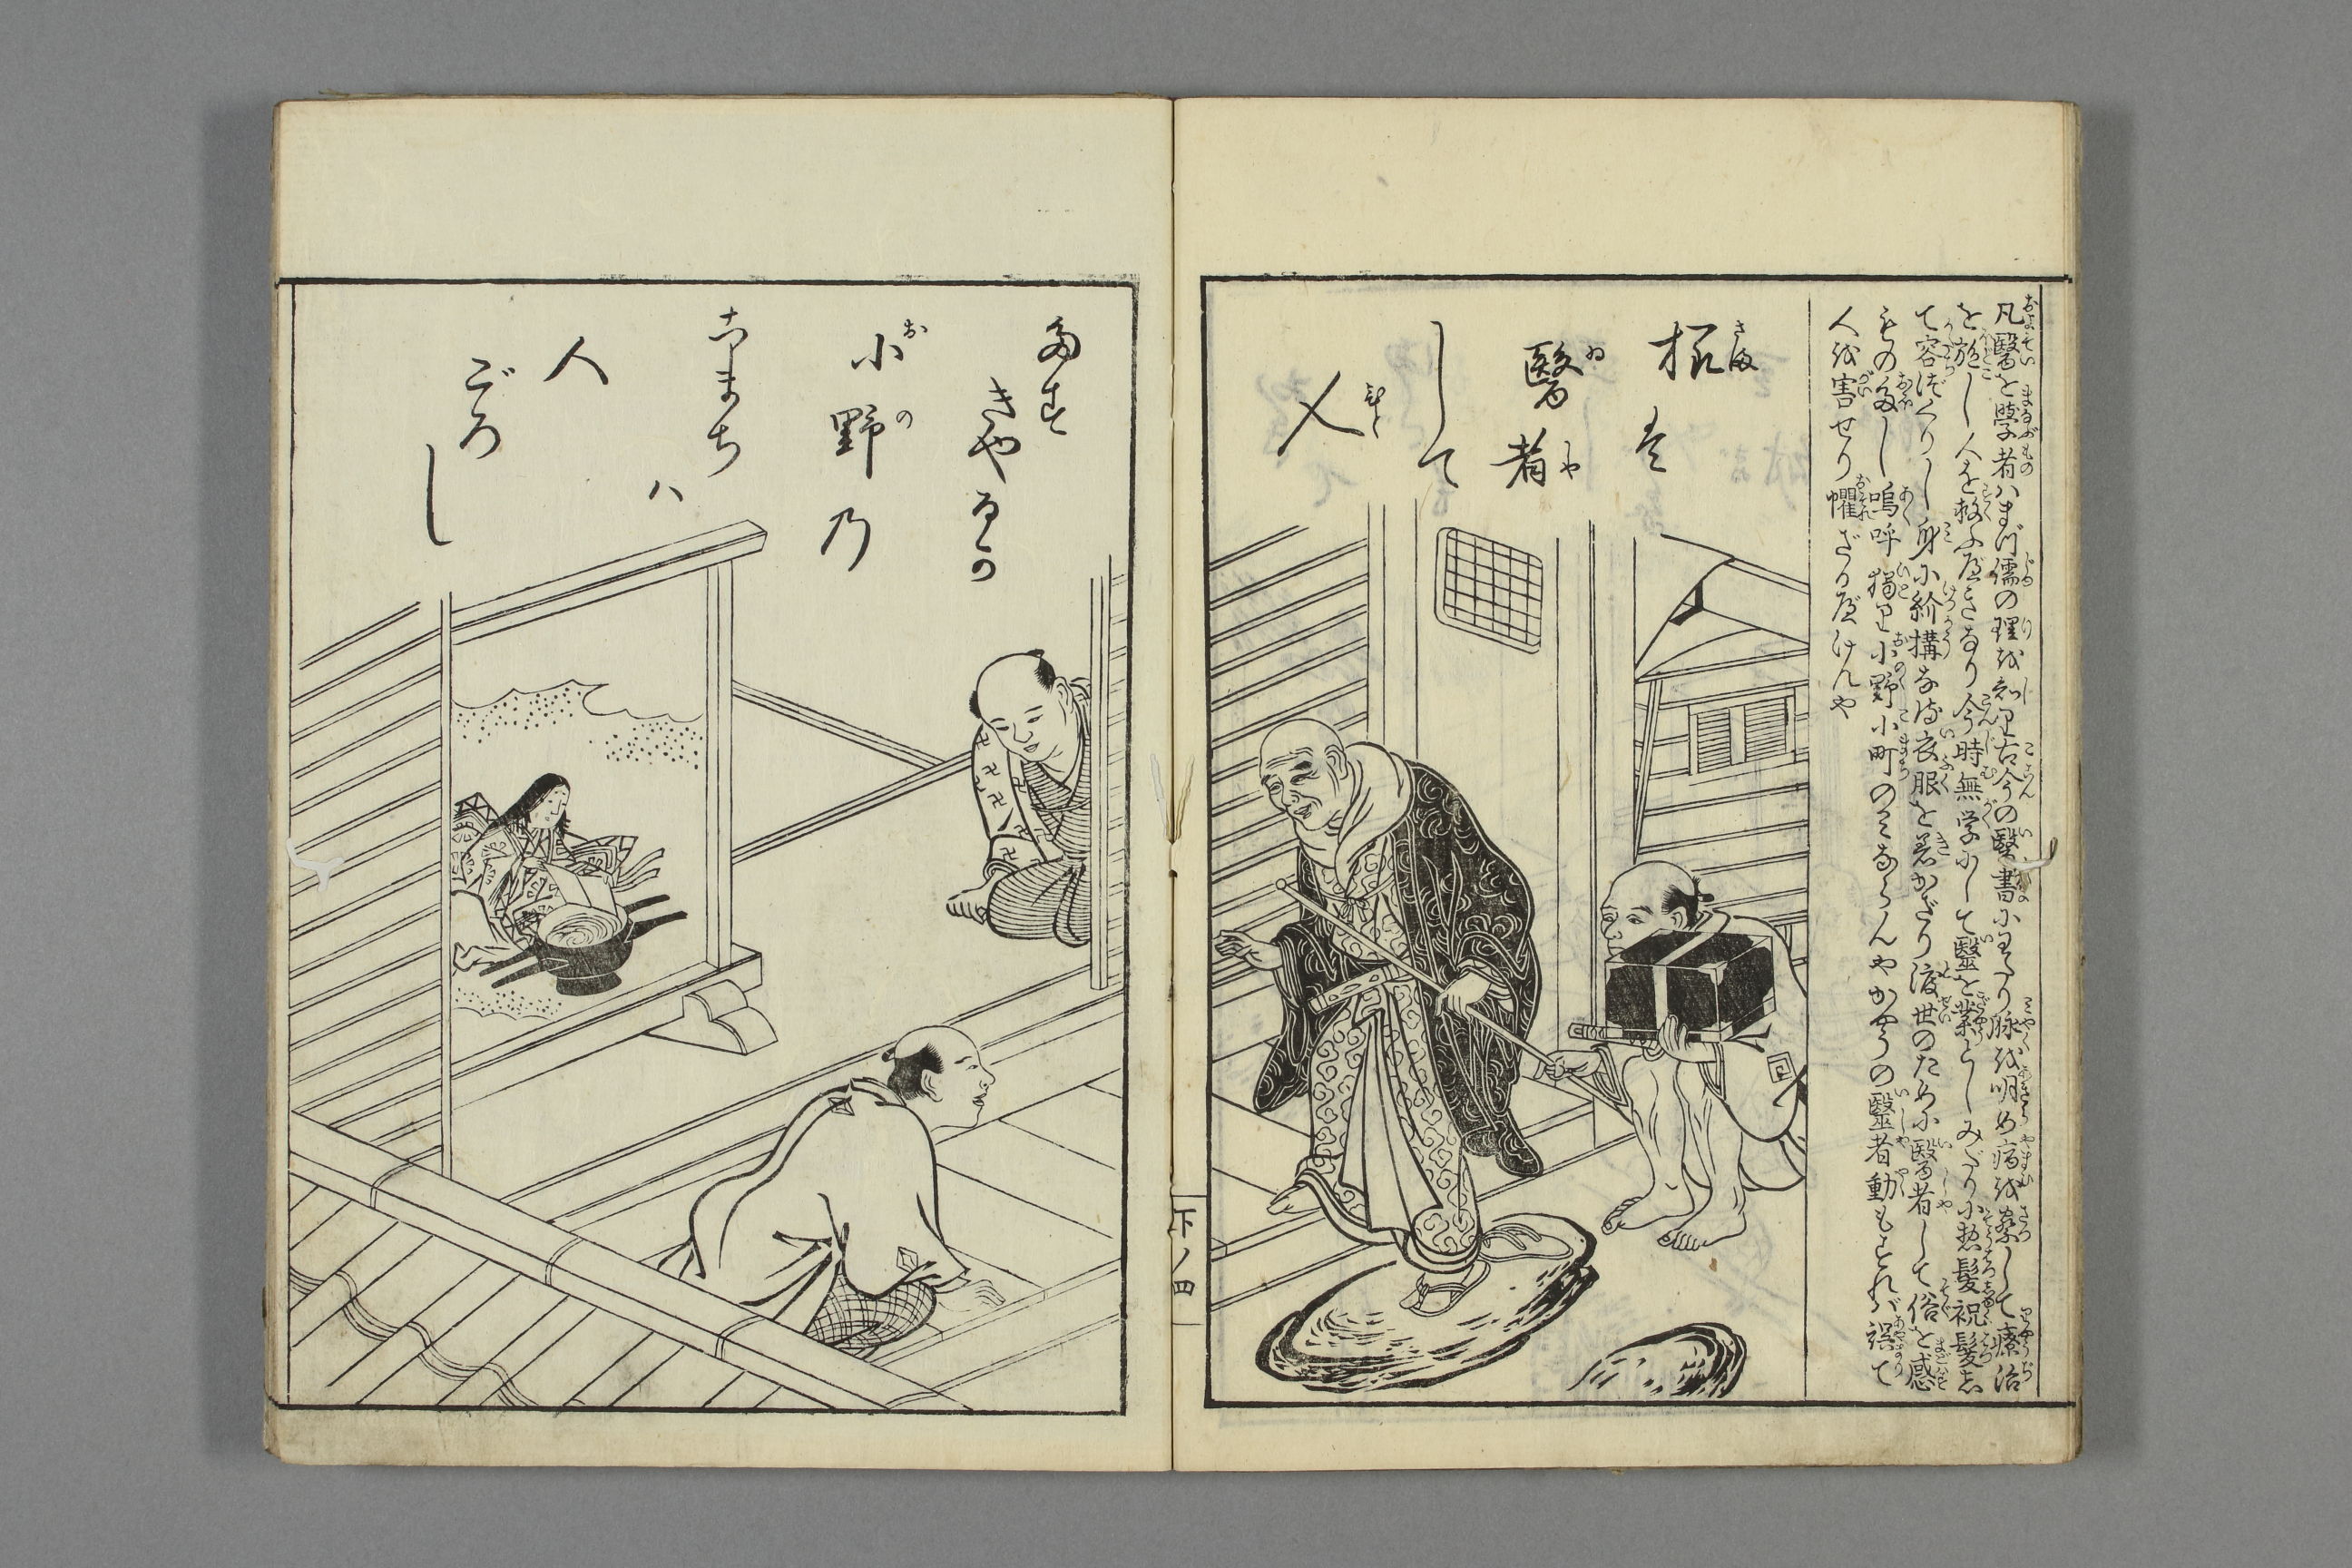 凡醫を學者ハまづ儒の理を知り古今の醫書にわたり脉を明め病を察して療治
を施し人を救ふべきなり今時無学にして醫を業としみだりに惣髪祝髪し
て容づくりし身に結構なる衣服を着かざり渡世のために醫者して俗を感
ものの多し嗚呼獨り小野小町のミならんやかやうの醫者動もすれバ誤て
人を害せり懼ざるべけんや
様々
醫者
して
人
下ノ四
多す
きやるか
小野乃
こまち
ハ
人
ごろ
し